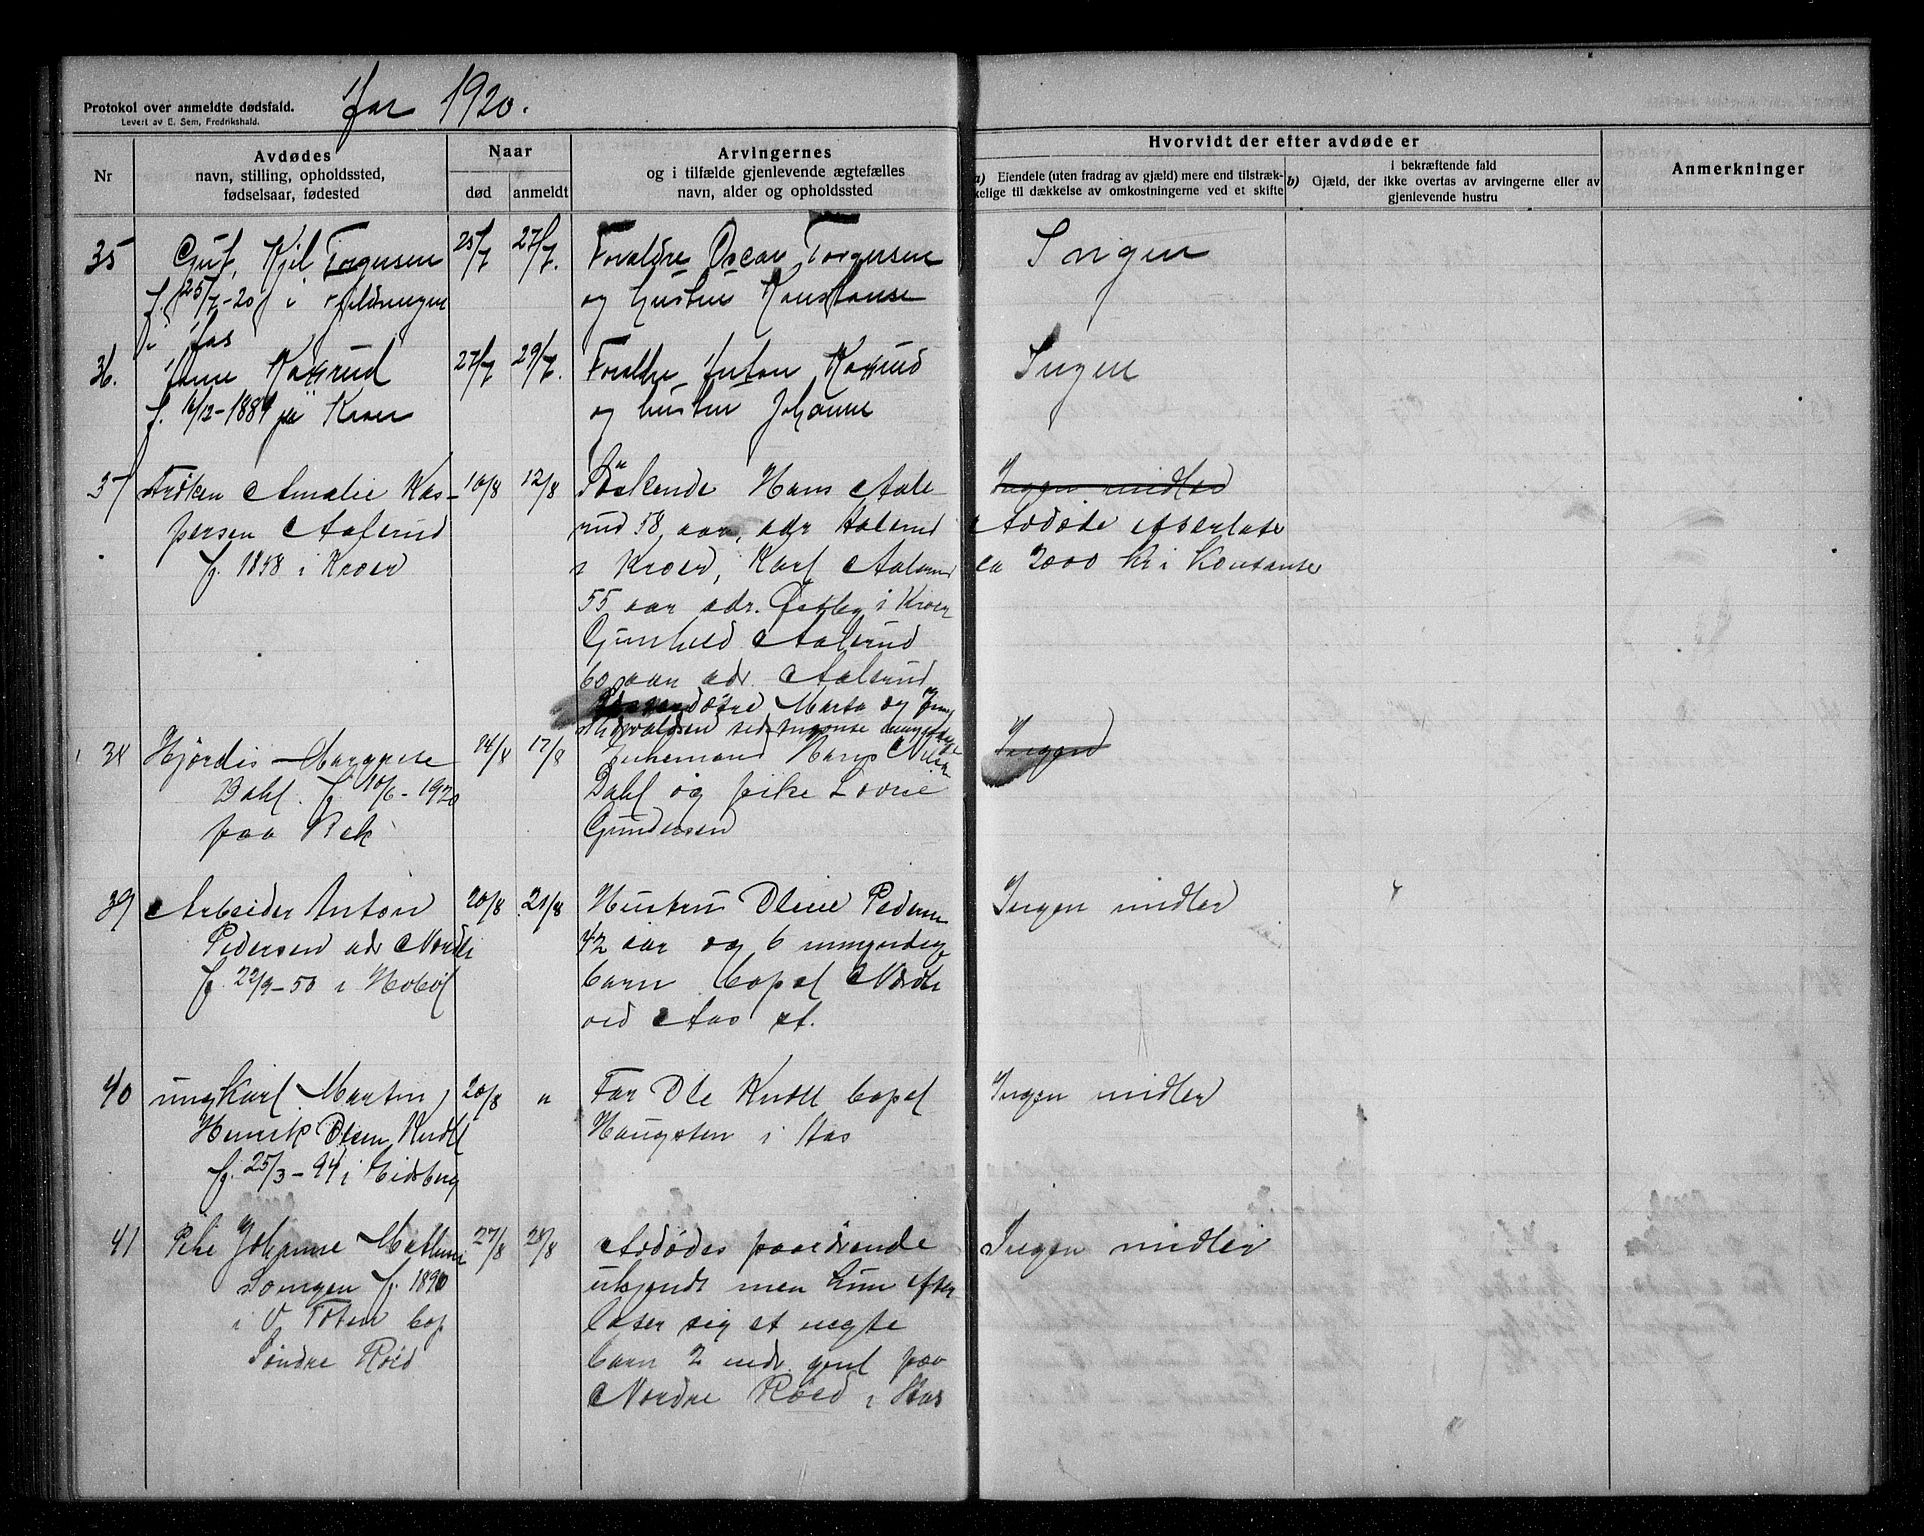 Protokol over anmeldte dødsfald.
Levert av E. Sem, Fredrikshald.
Aar 1920.
Nr
Avdødes
navn, stilling, opholdssted,
fødselsaar, fødested
Naar
død
anmeldt
Arvingernes
og i tilfælde gjenlevende ægtefælles
navn, alder og opholdssted
Hvorvidt der efter avdøde er
a) Eiendele (uten fradrag av gjæld) mere end tilstræk-
kelige til dækkelse av omkostningerne ved et skifte
i bekræftende fald
b) Gjæld, der ikke overtas av arvingerne eller av
gjenlevende hustru
Anmerkninger
35
Gut, Kjel Torgersen
f. 25/7-20 i
i Aas
25/7
27/7.
Foraldre Oscar Torgersen
og hustru Konstanse
Ingen
36.
Anne Kaxrud
f. 16/12-1889 på Kroer
27/7
29/7.
Foraldre Anton Kaxrud
og hustru Johanne
Ingen
37
Frøken Amalie Kas-
persen Aalerud
f. 1858 i Kroer
10/8
12/8
Søskende Hans Aale-
rud 58 aar, adr Aalerud
i Kroer, Karl Aalerud
55 aar adr. Østby i Kroer
Gunhild Aalerud
60 aar adr. Aalerud
døtre Marta og
Ingen midler
Avdøde efterlater
ca 2000 kr i Kontanter
38
Hjördis Margrete
Dahl. f. 10/6-1920
paa Bek
14/8
17/8
Enkemand Hans Nilsen
Dahl og pike Lovise
Gundersen
Ingen
39
Arbeider Anton
Pedersen adr Nordli
f. 22/9-50 i Hobøl
20/8
21/8
Hustru Oline Pedersen
42 aar og 6 umyndige
barn bopel Nordli
ved Aas st.
Ingen midler
40
ungKarl Martin
Henrik Olsen Knoll
f. 25/3-94 i Eidsberg
20/8
"
Far Ole Knoll bopel
Haugsten i Aas
Ingen midler
41
Pike Johanne Mathea
f. 1890
i V. Toten bop
Søndre Roed
27/8
28/8
Avdødes paarørende
ukjendt men hun efter-
later sig et uegte
barn 2 mdr. gml paa
Nordre Roed i Aas
Ingen midler